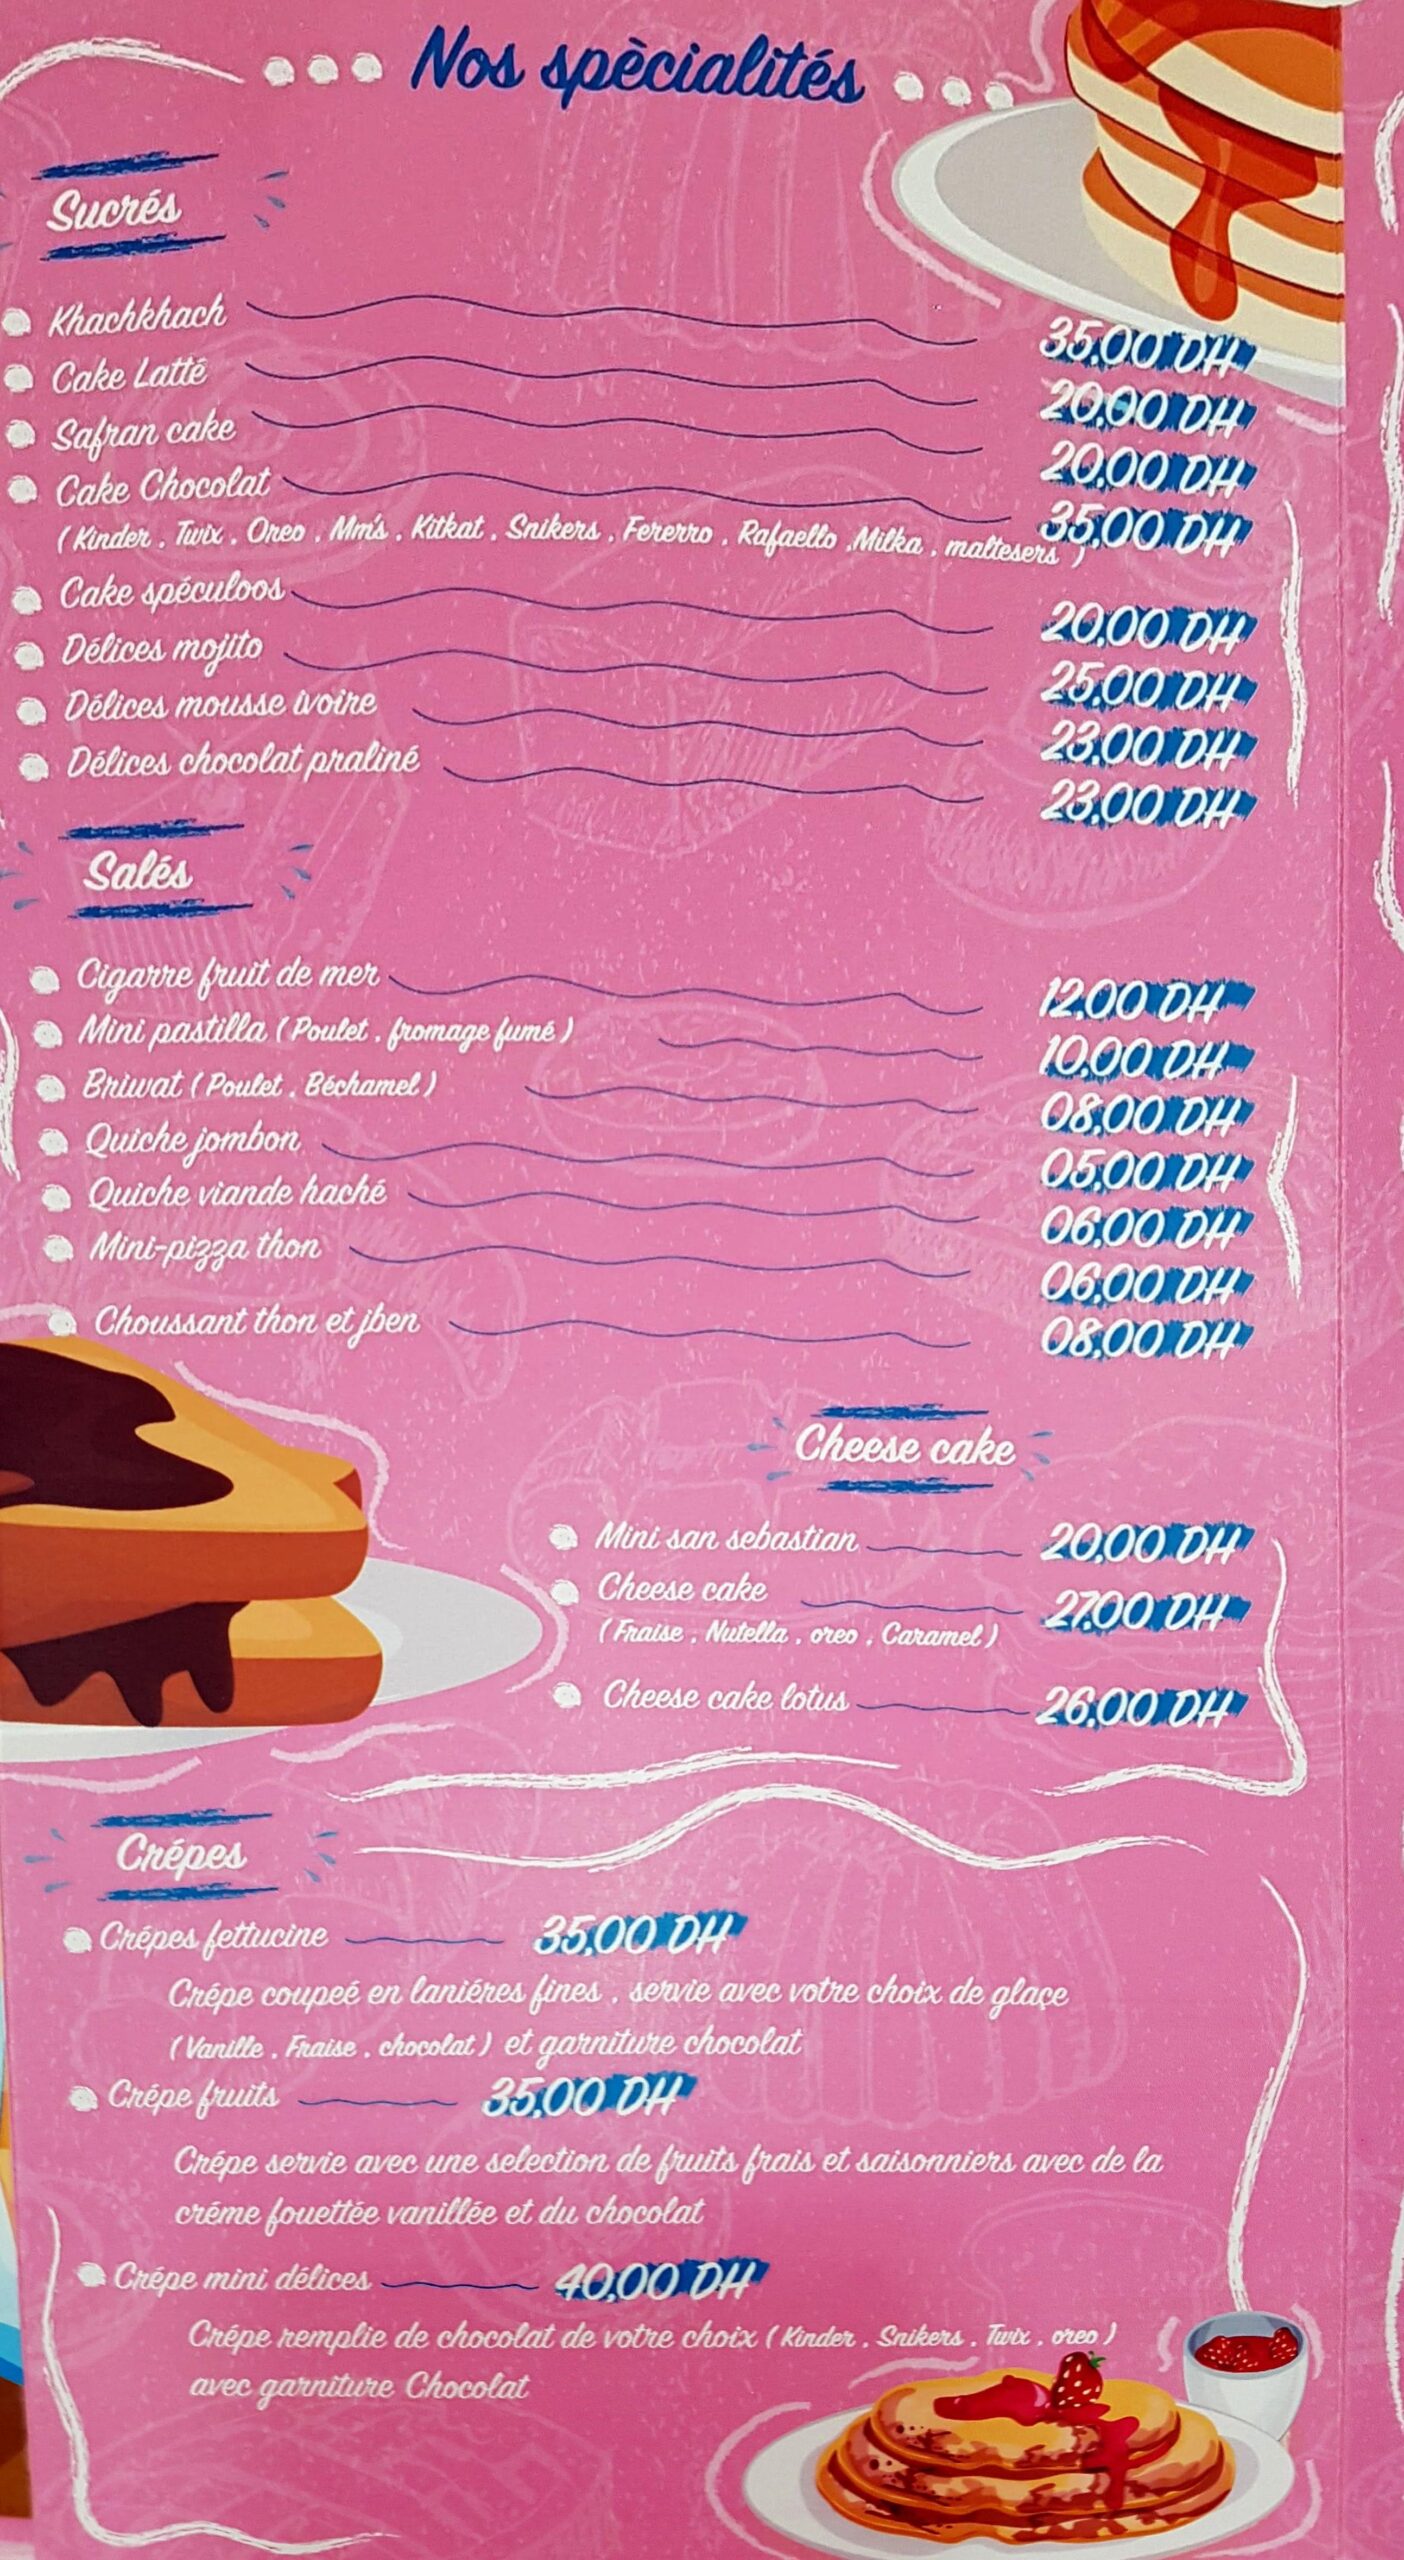 Nos spècialités
Sucrés
Khachkhach 35,00 DH
Cake Latté 20,00 DH
Safran cake 20,00 DH
Cake Chocolat 35,00 DH
( Kinder . Twix . Oreo . Mm's . Kitkat . Snikers . Fererro . Rafaello .Milka . maltesers )
Cake spéculoos 20,00 DH
Délices mojito 25,00 DH
Délices mousse ivoire 23,00 DH
Délices chocolat praliné 23,00 DH
Salés
Cigarre fruit de mer 12,00 DH
Mini pastilla ( Poulet . fromage fumé ) 10,00 DH
Briwat ( Poulet . Béchamel ) 08,00 DH
Quiche jombon 05,00 DH
Quiche viande haché 06,00 DH
Mini-pizza thon 06,00 DH
Choussant thon et jben 08,00 DH
Cheese cake
Mini san sebastian 20,00 DH
Cheese cake 27,00 DH
( Fraise . Nutella . oreo . Caramel )
Cheese cake lotus 26,00 DH
Crépes
Crépes fettucine 35,00 DH
Crépe coupeé en laniéres fines . servie avec votre choix de glaçe
( Vanille . Fraise . chocolat ) et garniture chocolat
Crépe fruits 35,00 DH
Crépe servie avec une selection de fruits frais et saisonniers avec de la
créme fouettée vanillée et du chocolat
Crépe mini délices 40,00 DH
Crépe remplie de chocolat de votre choix ( Kinder . Snikers . Twix . oreo )
avec garniture Chocolat